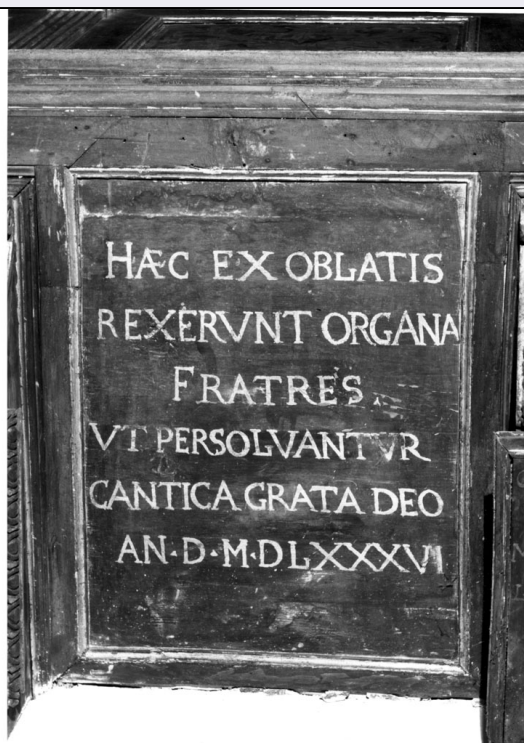 HÆC EX OBLATIS
REXERVNT ORGANA
FRATRES
VT PERSOLVANTVR
CANTICA GRATA DEO
AN·D·M·DLXXXVI